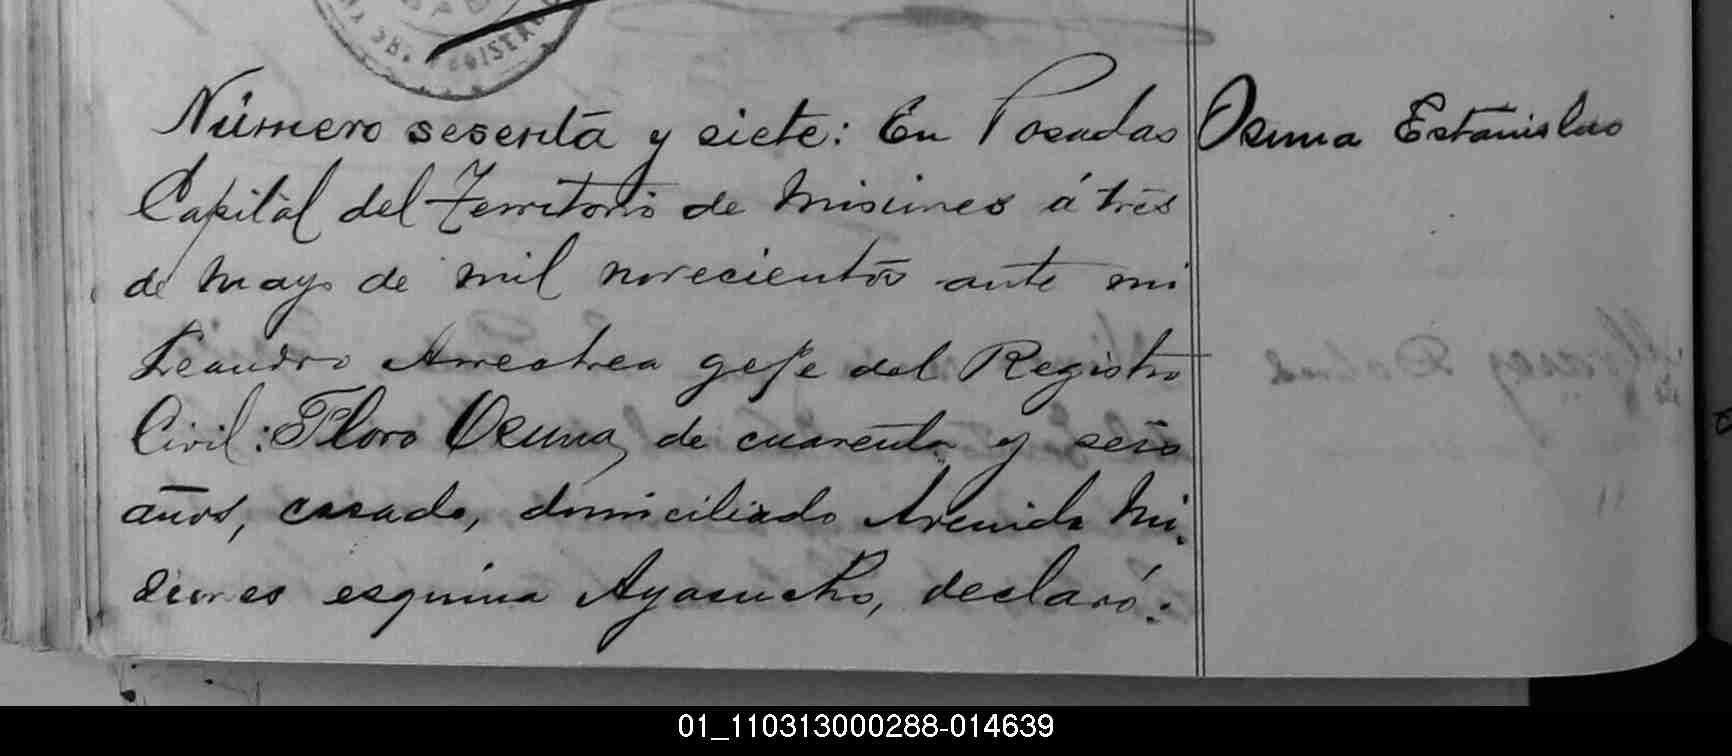 Número sesenta y siete: En Posadas
Osuna Estanislao
Capital del Territorio de Misiones á tres
de Mayo de mil novecientos ante mi
Leandro Arrechea gefe del Registro
Civil: Floro Osuna, de cuarenta y seis
años, casado, domiciliado Avenida Mi-
siones esquina Ayacucho, declaró:
01_110313000288-014639